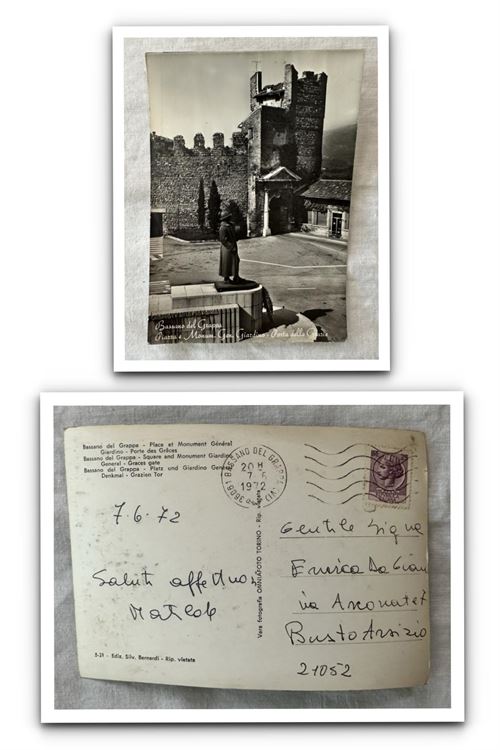 Bassano del Grappa
Piazza e Monum. Gen. Giardino - Porta delle Grazie
Bassano del Grappa - Place et Monument Général
Giardino - Porte des Grâces
Bassano del Grappa - Square and Monument Giardino
General - Graces gate
Bassano del Grappa - Platz und Giardino General
Denkmal - Grazien Tor
36061 BASSANO DEL GRAPPA (VI)
20 H
7.6
1972
7.6.72
Saluti affettuosi
Matilde
Vera fotografia OMNIAFOTO TORINO - Rip. vietata
Gentile Sig.na
Enrica Da
via
Busto Arsizio
21052
5-21 - Ediz. Silv. Bernardi - Rip. vietata